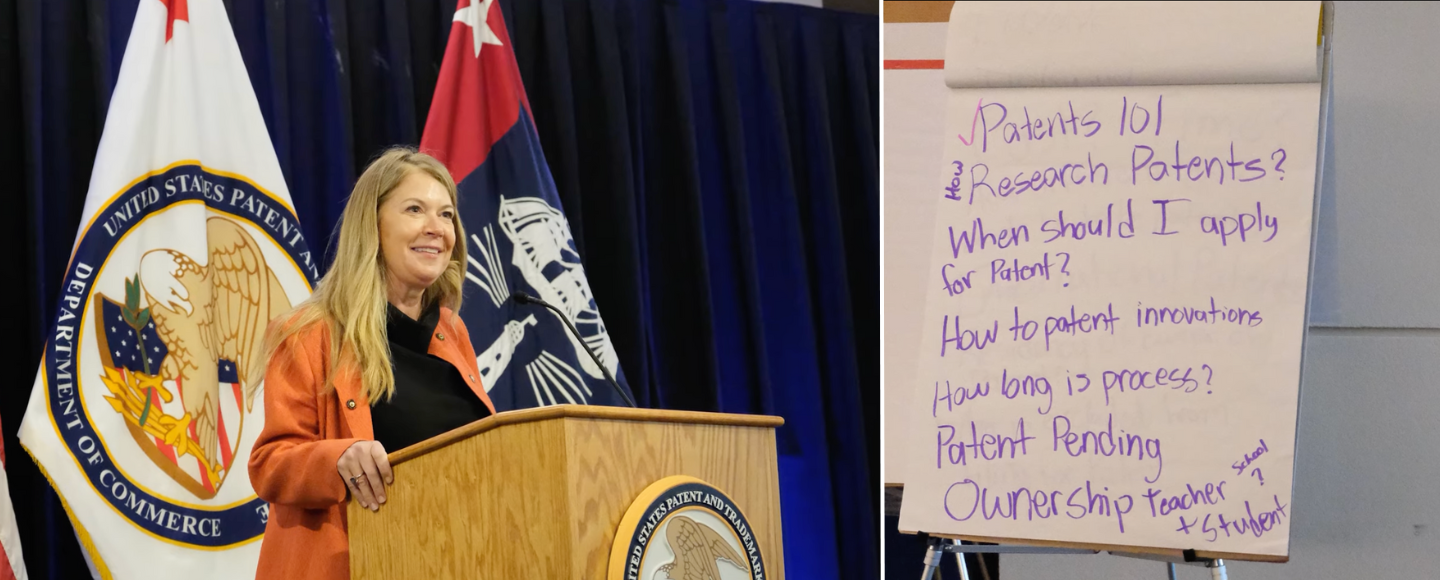 UNITED STATES PATENT AN
DEPARTMENT OF COMMERCE
UNITED STATES PATENT AND TRADEMARK
✓Patents 101
How Research Patents?
When should I apply
for Patent?
How to patent innovations
How long is process?
Patent Pending
Ownership teacher School ?
+ Student